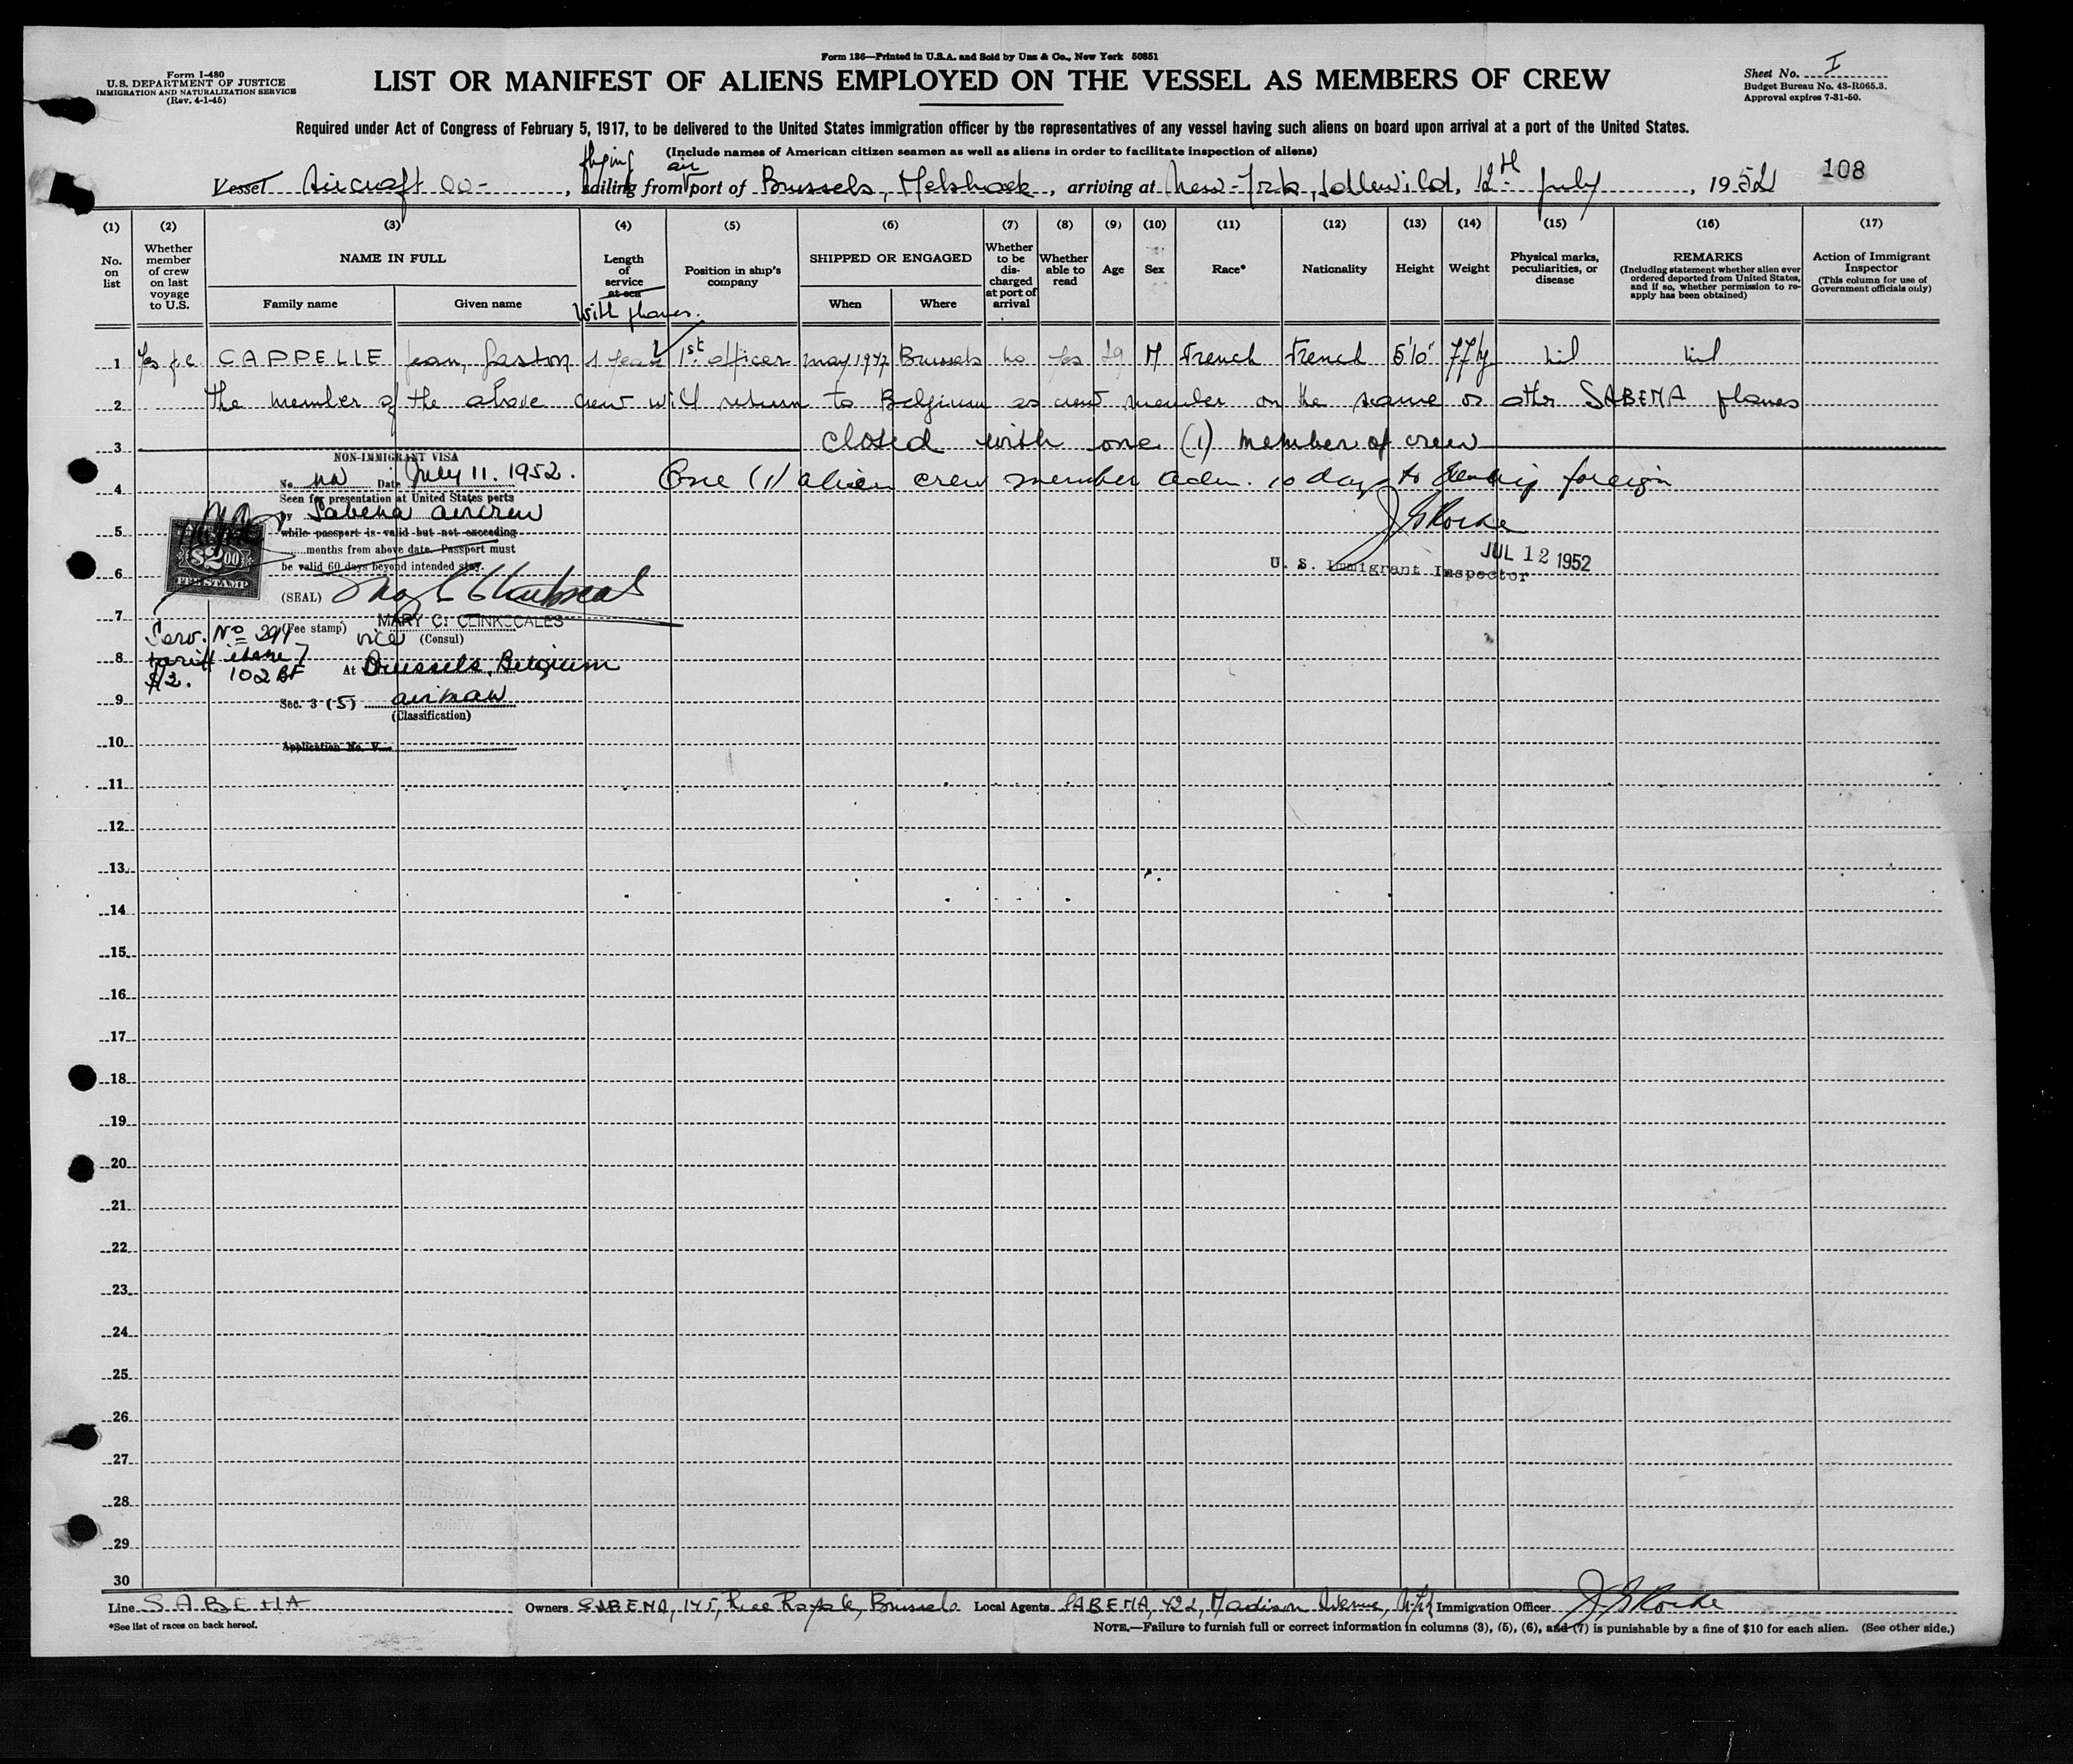 Form 136—Printed in U.S.A. and Sold by Unz & Co., New York 50851
Form I-480
U.S. DEPARTMENT OF JUSTICE
IMMIGRATION AND NATURALIZATION SERVICE
(Rev. 4-1-45)
LIST OR MANIFEST OF ALIENS EMPLOYED ON THE VESSEL AS MEMBERS OF CREW
Sheet No. I
Budget Bureau No. 43-R065.3.
Approval expires 7-31-50.
Required under Act of Congress of February 5, 1917, to be delivered to the United States immigration officer by the representatives of any vessel having such aliens on board upon arrival at a port of the United States.
(Include names of American citizen seamen as well as aliens in order to facilitate inspection of aliens)
flying air
Vessel Aircraft OO- , sailing from port of Brussels, Melsbroek, arriving at New-York, Idlewild, 12th July, 1952
108
(1) (2) (3) (4) (5) (6) (7) (8) (9) (10) (11) (12) (13) (14) (15) (16) (17)
No. on list
Whether member of crew on last voyage to U.S.
NAME IN FULL
Family name
Given name
Length of service at sea
With planes.
Position in ship's company
SHIPPED OR ENGAGED
When
Where
Whether to be discharged at port of arrival
Whether able to read
Age
Sex
Race*
Nationality
Height
Weight
Physical marks, peculiarities, or disease
REMARKS
(Including statement whether alien ever ordered deported from United States, and if so, whether permission to reapply has been obtained)
Action of Immigrant Inspector
(This column for use of Government officials only)
1 CAPPELLE Jean, Gaston 1st officer May 1947 Brussels no yes 29 M French French 5'10" 77 kg nil nil
2 the member of the above crew will return to Belgium as crew member on the same or other SABENA planes
3 closed with one (1) member of crew
NON-IMMIGRANT VISA
No. Date July 11. 1952.
4 One (1) alien crew member adm. 10 days to foreign
Seen for presentation at United States ports
by Sabena aircrew
5
while passport is valid but not exceeding
months from above date. Passport must
be valid 60 days beyond intended stay.
$2.00
FEE STAMP
JUL 12 1952
U. S. Immigrant Inspector
6
(SEAL)
7
MARY C. CLINKSCALES
Serv. No 291 (Fee stamp) vice (Consul)
8
tariff item 7
$2. 102 BF At Brussels, Belgium
9
Sec. 3 (5) airman
(Classification)
10
Application No. V
11
12
13
14
15
16
17
18
19
20
21
22
23
24
25
26
27
28
29
30
Line SABENA Owners SABENA, 145, Rue Royale, Brussels Local Agents SABENA, 422, Madison Avenue, N.Y. Immigration Officer
*See list of races on back hereof.
NOTE.—Failure to furnish full or correct information in columns (3), (5), (6), and (7) is punishable by a fine of $10 for each alien. (See other side.)